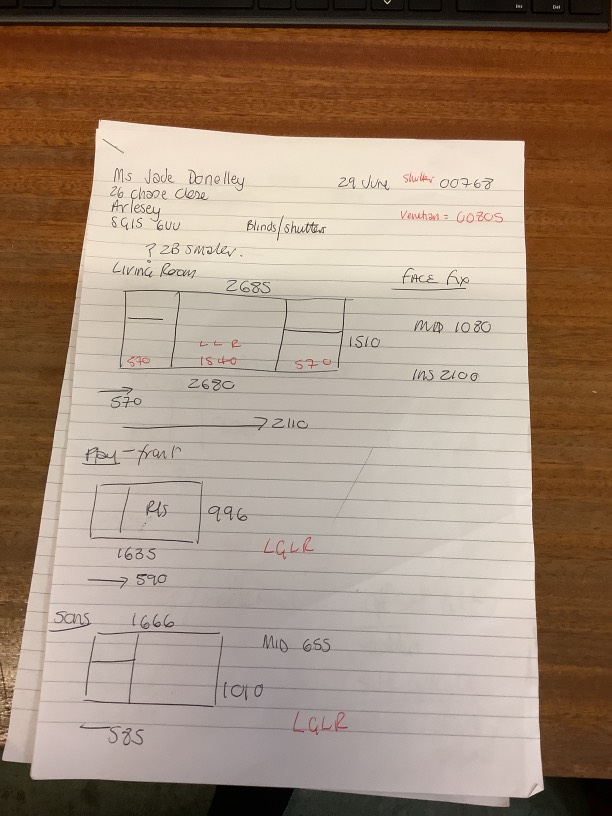 Ms Jade Donelley
29 June Shutter 00768
26 Chase Close
Arlesey
Venetian = 00805
SG15 6UU Blinds/shutters
? 2B smaller.
Living Room FACE Fix
2685
MID 1080
1510
L L R
570 1540 570
2680 INS 2100
570
2110
- front
R/S 996
1635 LGLR
590
Sons 1666
MID 655
1010
LGLR
585